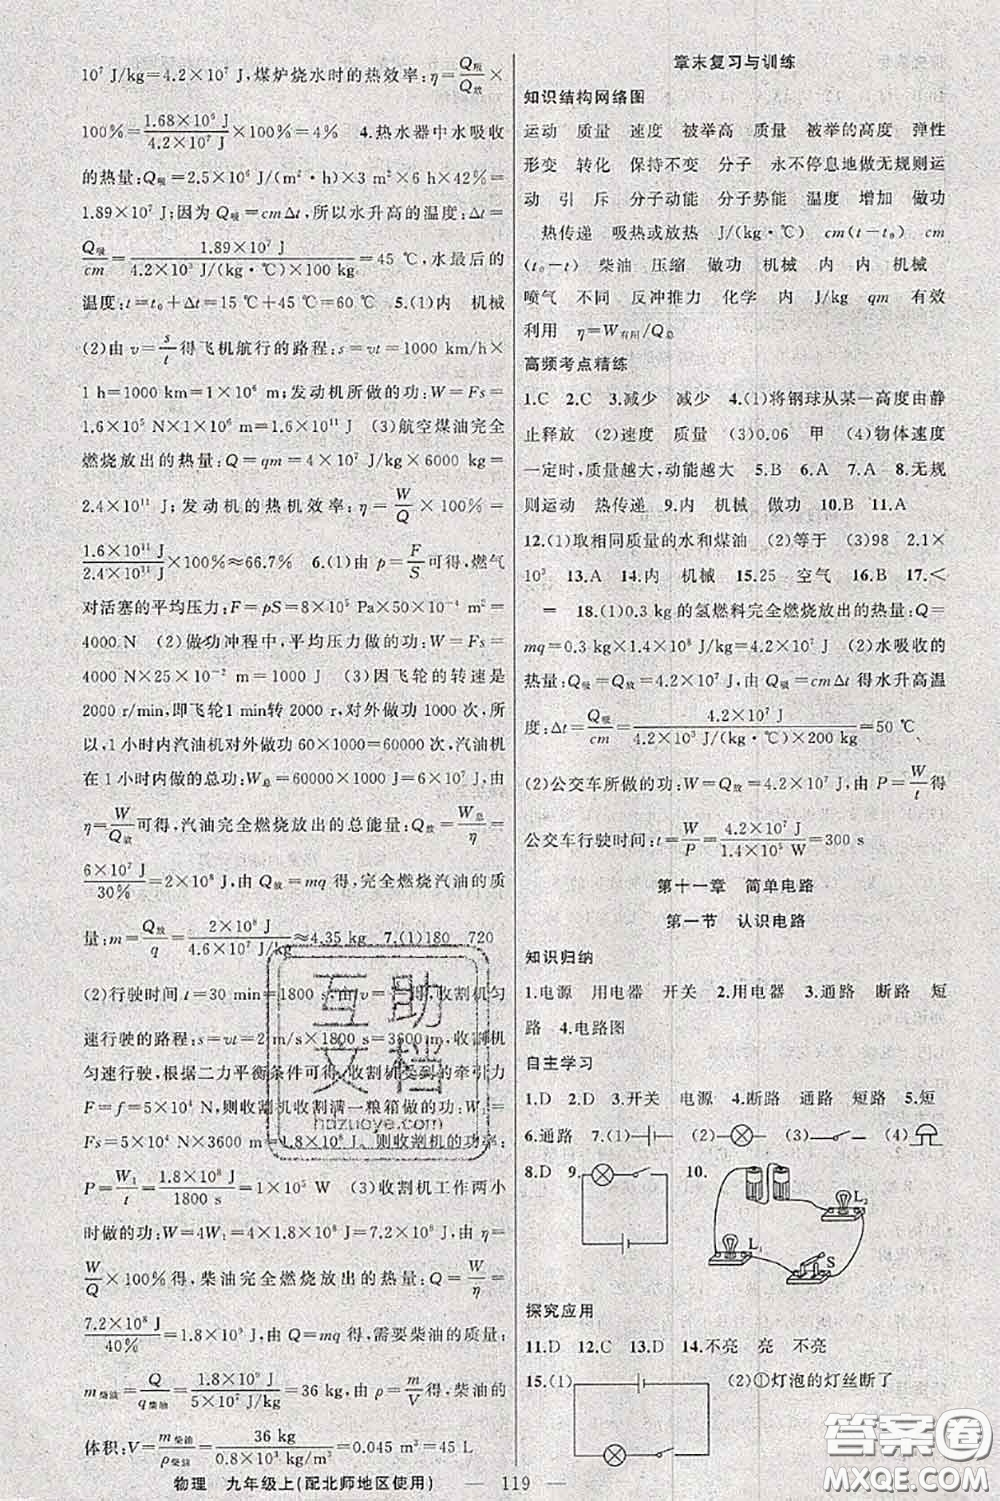 10⁷ J/kg=4.2×10⁷ J,煤炉烧水时的热效率:η=Q吸/Q放×
100%=1.68×10⁵ J/4.2×10⁷ J×100%=4%　4.热水器中水吸收
的热量:Q吸=2.5×10⁶ J/(m²·h)×3 m²×6 h×42%=
1.89×10⁷ J;因为Q吸=cmΔt,所以水升高的温度:Δt=
Q吸/cm=1.89×10⁷ J/4.2×10³ J/(kg·℃)×100 kg=45 ℃,水最后的
温度:t=t₀+Δt=15 ℃+45 ℃=60 ℃　5.(1)内　机械
(2)由v=s/t得飞机航行的路程:s=vt=1000 km/h×
1 h=1000 km=1×10⁶ m;发动机所做的功:W=Fs=
1.6×10⁵ N×1×10⁶ m=1.6×10¹¹ J　(3)航空煤油完全
燃烧放出的热量:Q=qm=4×10⁷ J/kg×6000 kg=
2.4×10¹¹ J;发动机的热机效率:η=W/Q×100%=
1.6×10¹¹ J/2.4×10¹¹ J×100%≈66.7%　6.(1)由p=F/S可得,燃气
对活塞的平均压力:F=pS=8×10⁵ Pa×50×10⁻⁴ m²=
4000 N　(2)做功冲程中,平均压力做的功:W=Fs=
4000 N×25×10⁻² m=1000 J　(3)因飞轮的转速是
2000 r/min,即飞轮1 min转2000 r,对外做功1000次,所
以,1小时内汽油机对外做功60×1000=60000次,汽油机
在1小时内做的总功:W总=60000×1000 J=6×10⁷ J,由
η=W/Q放可得,汽油完全燃烧放出的总能量:Q放=W总/η=
6×10⁷ J/30%=2×10⁸ J,由Q放=mq得,完全燃烧汽油的质
量:m=Q放/q=2×10⁸ J/4.6×10⁷ J/kg≈4.35 kg　7.(1)180　720
(2)行驶时间t=30 min=1800 s,收割机匀
速行驶的路程:s=vt=2 m/s×1800 s=3600 m,收割机
匀速行驶,根据二力平衡条件可得,收割机受到的牵引力
F=f=5×10⁴ N,则收割机收割满一粮箱做的功:W₁=
Fs=5×10⁴ N×3600 m=1.8×10⁸ J,则收割机的功率:
P=W₁/t=1.8×10⁸ J/1800 s=1×10⁵ W　(3)收割机工作两小
时做的功:W=4W₁=4×1.8×10⁸ J=7.2×10⁸ J,由η=
W/Q×100%得,柴油完全燃烧放出的热量:Q=W/η=
7.2×10⁸ J/40%=1.8×10⁹ J,由Q=mq得,需要柴油的质量:
m柴油=Q/q柴油=1.8×10⁹ J/5×10⁷ J/kg=36 kg,由ρ=m/V得,柴油的
体积:V=m柴油/ρ柴油=36 kg/0.8×10³ kg/m³=0.045 m³=45 L
章末复习与训练
知识结构网络图
运动　质量　速度　被举高　质量　被举的高度　弹性
形变　转化　保持不变　分子　永不停息地做无规则运
动　引　斥　分子动能　分子势能　温度　增加　做功
热传递　吸热或放热　J/(kg·℃)　cm(t-t₀)　cm
(t₀-t)　柴油　压缩　做功　机械　内　内　机械
喷气　不同　反冲推力　化学　内　J/kg　qm　有效
利用　η=W有用/Q总
高频考点精练
1.C　2.C　3.减少　减少　4.(1)将钢球从某一高度由静
止释放　(2)速度　质量　(3)0.06　甲　(4)物体速度
一定时,质量越大,动能越大　5.B　6.A　7.A　8.无规
则运动　热传递　9.内　机械　做功　10.B　11.A
12.(1)取相同质量的水和煤油　(2)等于　(3)98　2.1×
10³　13.A　14.内　机械　15.25　空气　16.B　17.<
=　18.(1)0.3 kg的氢燃料完全燃烧放出的热量:Q=
mq=0.3 kg×1.4×10⁸ J/kg=4.2×10⁷ J　(2)水吸收的
热量:Q吸=Q放=4.2×10⁷ J,由Q吸=cmΔt得水升高温
度:Δt=Q吸/cm=4.2×10⁷ J/4.2×10³ J/(kg·℃)×200 kg=50 ℃
(2)公交车所做的功:W=Q放=4.2×10⁷ J,由P=W/t得
公交车行驶时间:t=W/P=4.2×10⁷ J/1.4×10⁵ W=300 s
第十一章　简单电路
第一节　认识电路
知识归纳
1.电源　用电器　开关　2.用电器　3.通路　断路　短
路　4.电路图
自主学习
1.D　2.D　3.开关　电源　4.断路　通路　短路　5.短
6.通路　7.(1)　(2)　(3)　(4)
8.D　9.　10.
L₂
L₁
S
探究应用
11.D　12.C　13.D　14.不亮　亮　不亮
15.(1)　(2)①灯泡的灯丝断了
互助
文档
hdzuoye.com
物理　九年级上(配北师地区使用)　— 119 —
答案圈
MXQE.COM